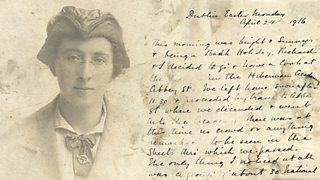 Dublin Easter Monday
April 24th 1916
This morning was bright & Sunny &
being a Bank Holiday, Richard
& I decided to go & have a look at
the in the Hibernian
Abbey St. We left home
11.30 & proceeded by tram to Abbey
St where we descended & went
into the There was at
this time no crowd or anything
to be seen in the
Streets thro' which we passed.
The only thing I noticed at all
was a group of about 30 national